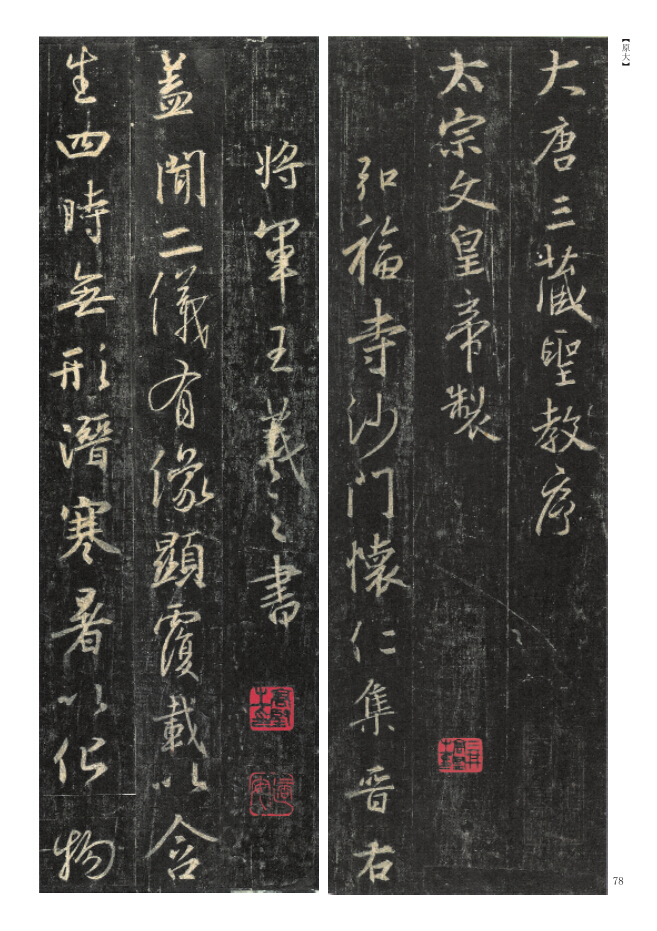 【原大】
大唐三藏聖教序
太宗文皇帝製
弘福寺沙門懷仁集晉右
將軍王羲之書
蓋聞二儀有像顯覆載以含
生四時無形潛寒暑以化物
78